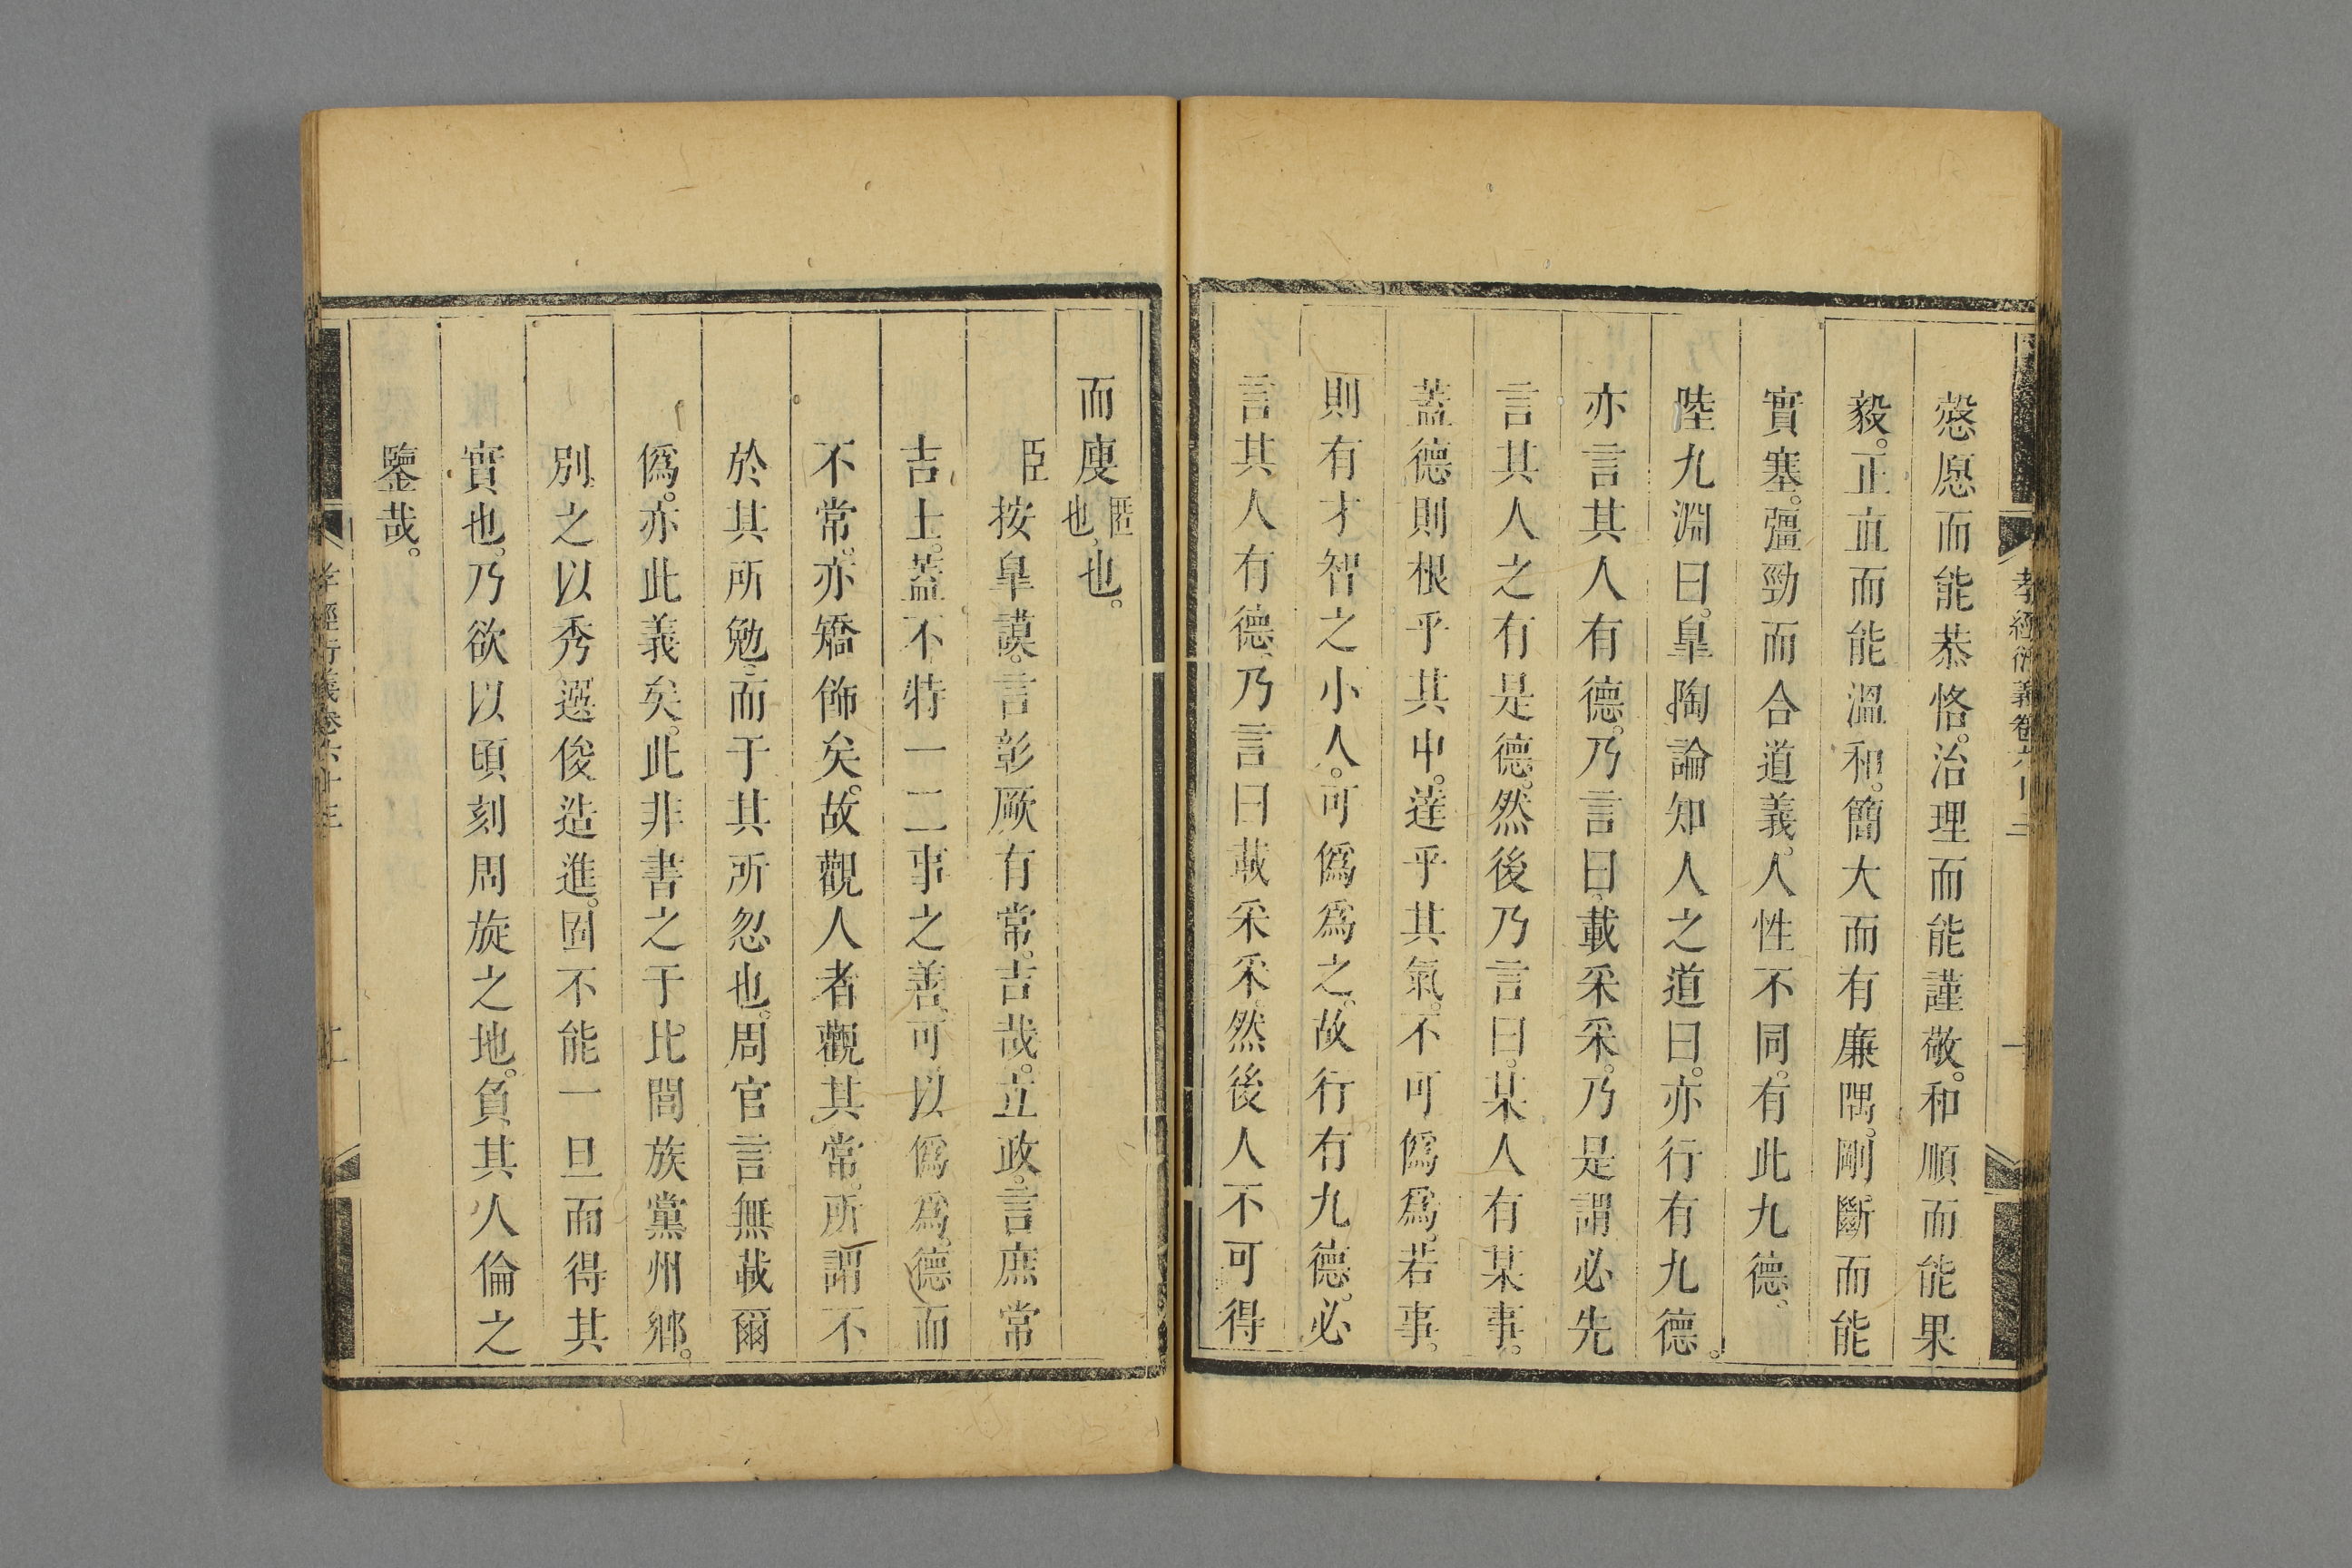 愨愿而能恭恪。治理而能謹敬。和順而能果
毅。正直而能溫和。簡大而有廉隅。剛斷而能
實塞。彊勁而合道義。人性不同。有此九德。
陸九淵曰。皐陶論知人之道曰。亦行有九德。
亦言其人有德。乃言曰。載采采。乃是謂必先
言其人之有是德。然後乃言曰。某人有某事。
蓋德則根乎其中。達乎其氣。不可僞爲。若事。
則有才智之小人。可僞爲之。故行有九德。必
言其人有德。乃言曰載采采。然後人不可得
而廋匿也。也。
臣按皐謨。言彰厥有常。吉哉。立政。言庶常
吉士。蓋不特一二事之善。可以僞爲。德而
不常。亦矯飾矣。故觀人者觀其常。所謂不
於其所勉。而于其所忽也。周官言無載爾
僞。亦此義矣。此非書之于比閭族黨州鄉。
別之以秀選俊造進。固不能一旦而得其
實也。乃欲以頃刻周旋之地。負其人倫之
鑒哉。